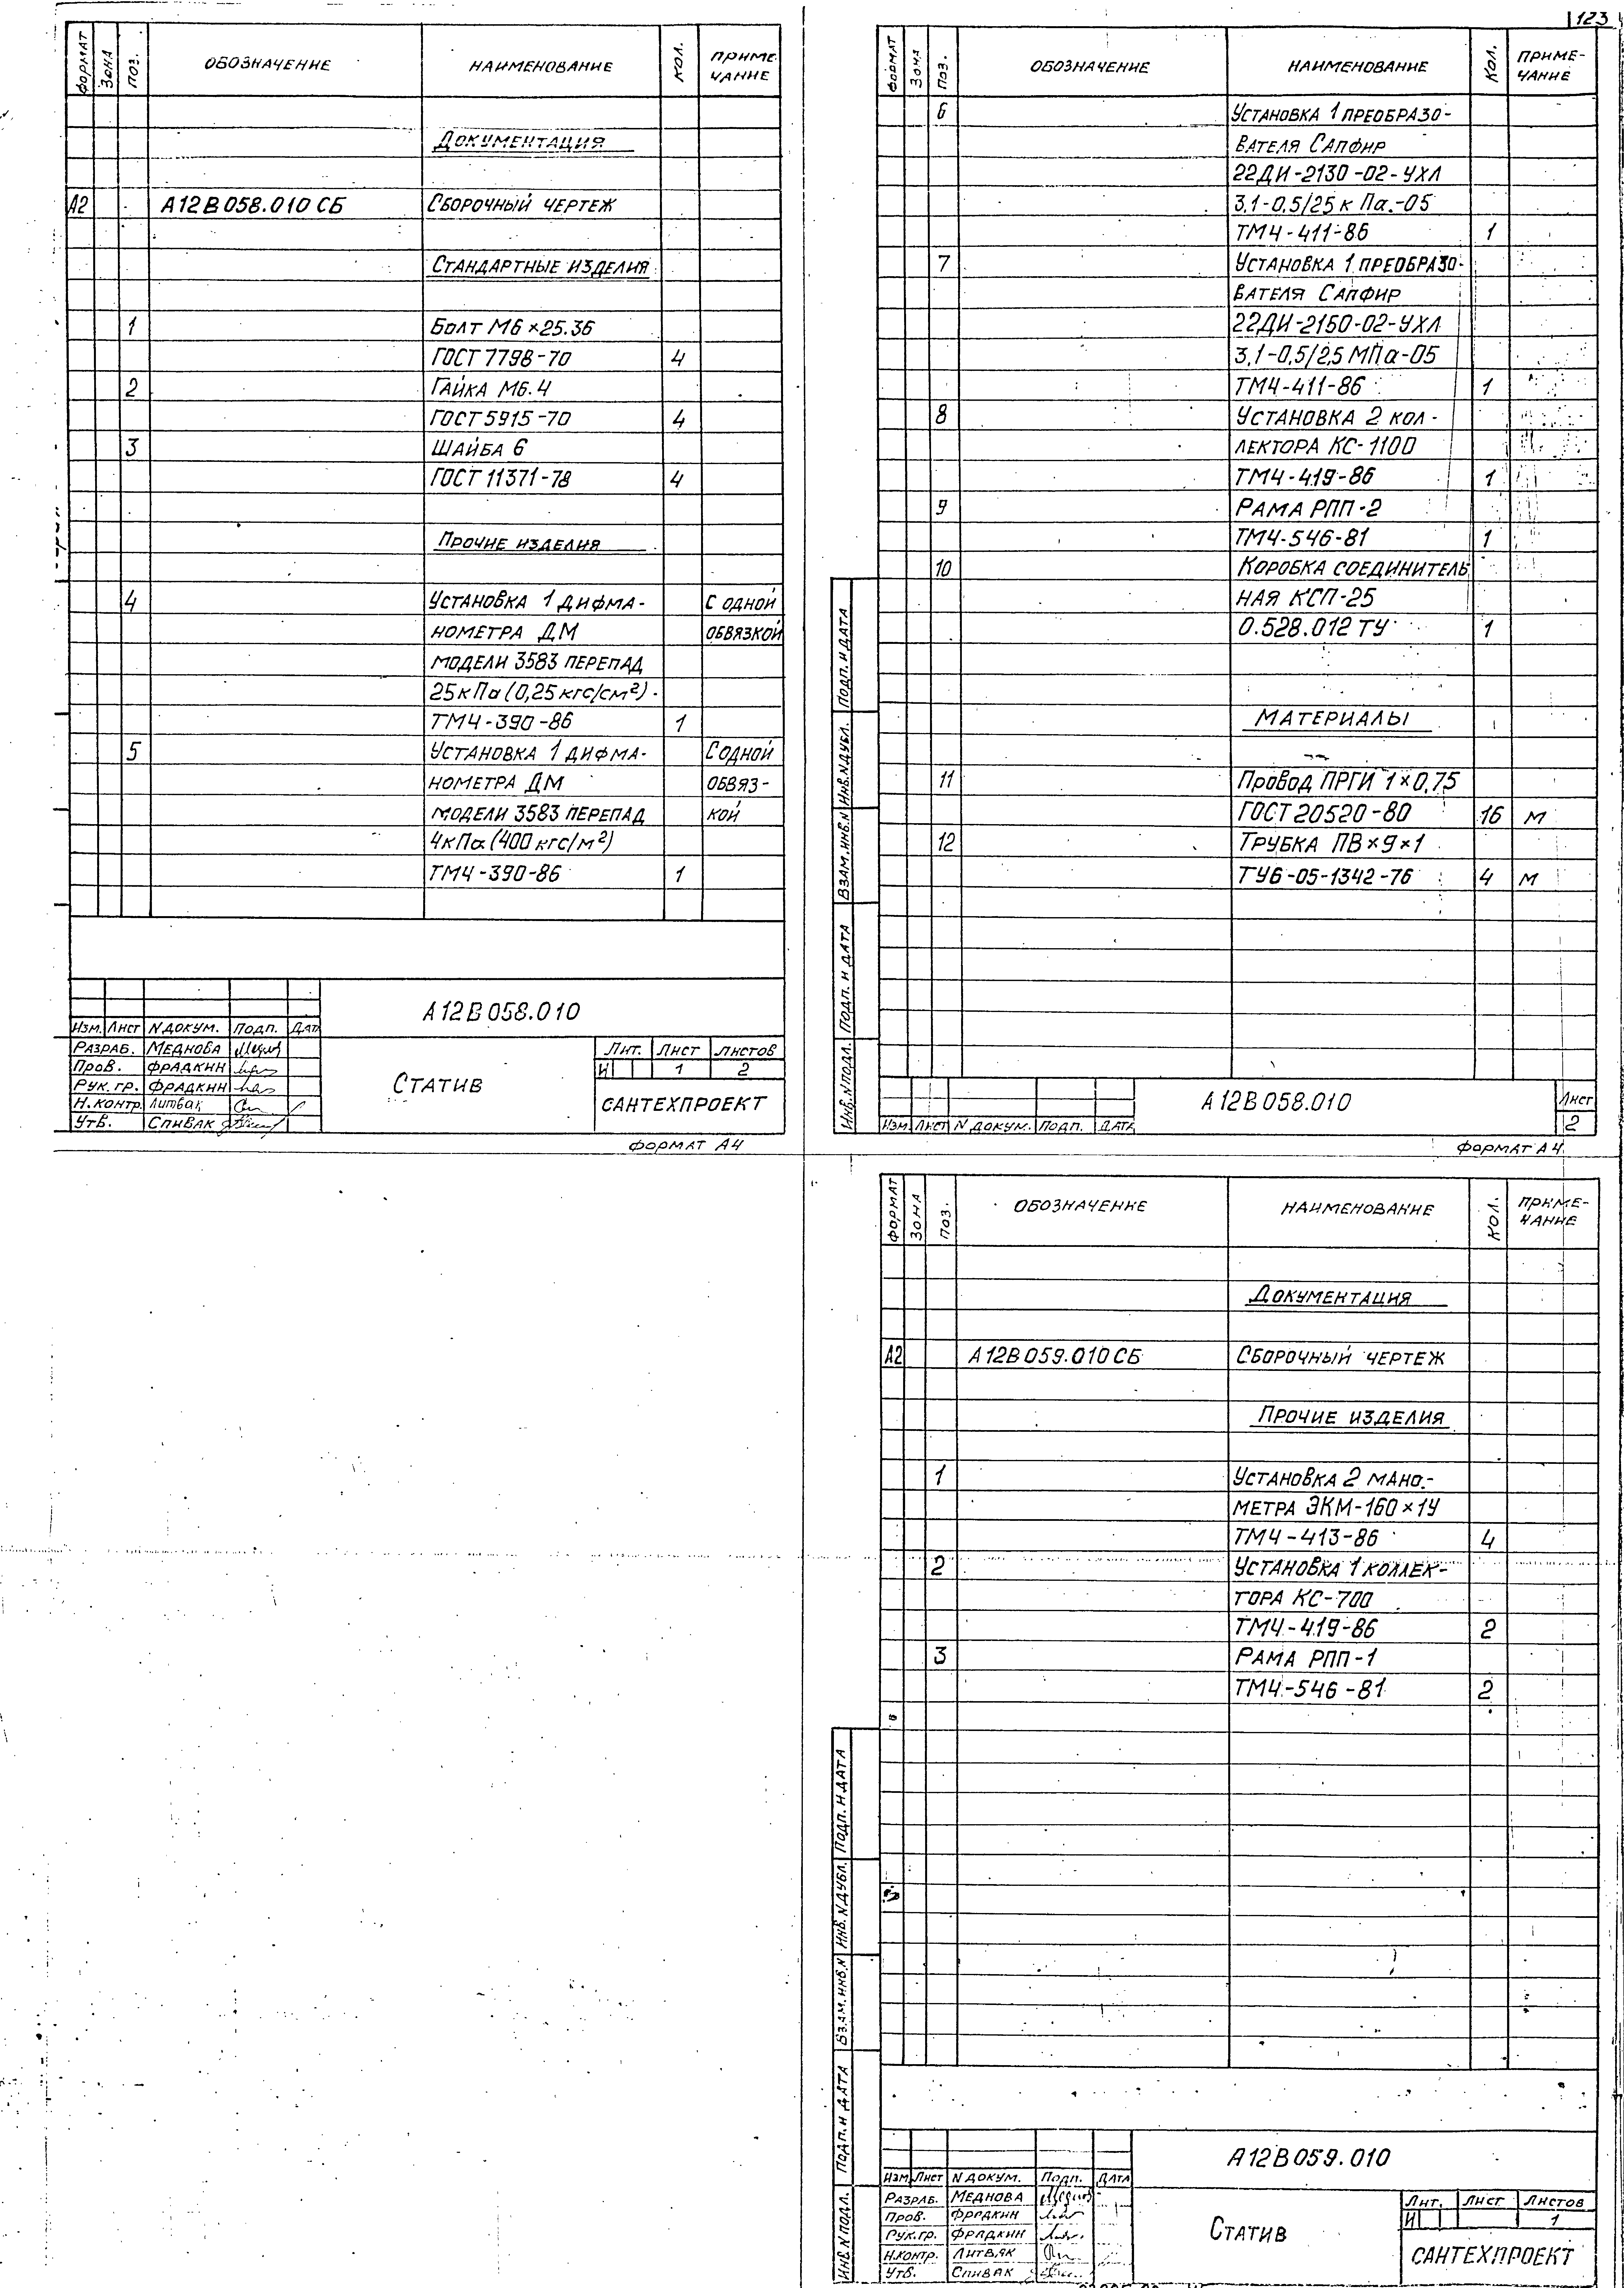 ФОРМАТ ЗОНА ПОЗ. ОБОЗНАЧЕНИЕ НАИМЕНОВАНИЕ КОЛ. ПРИМЕ
ЧАНИЕ
ДОКУМЕНТАЦИЯ
А2 А12В058.010 СБ СБОРОЧНЫЙ ЧЕРТЕЖ
СТАНДАРТНЫЕ ИЗДЕЛИЯ
1 БОЛТ М6×25.36
ГОСТ 7798-70 4
2 ГАЙКА М6.4
ГОСТ 5915-70 4
3 ШАЙБА 6
ГОСТ 11371-78 4
ПРОЧИЕ ИЗДЕЛИЯ
4 УСТАНОВКА 1 ДИФМА- С ОДНОЙ
НОМЕТРА ДМ ОБВЯЗКОЙ
МОДЕЛИ 3583 ПЕРЕПАД
25кПа (0,25 кгс/см²)
ТМ4-390-86 1
5 УСТАНОВКА 1 ДИФМА- С ОДНОЙ
НОМЕТРА ДМ ОБВЯЗ-
МОДЕЛИ 3583 ПЕРЕПАД КОЙ
4кПа (400 кгс/м²)
ТМ4-390-86 1
А12В058.010
ИЗМ. ЛИСТ N ДОКУМ. ПОДП. ДАТ
РАЗРАБ. МЕДНОВА
ПРОВ. ФРАДКИН
РУК. ГР. ФРАДКИН
Н. КОНТР. ЛИТВАК
УТВ. СПИВАК
СТАТИВ
ЛИТ. ЛИСТ ЛИСТОВ
И 1 2
САНТЕХПРОЕКТ
ФОРМАТ А4
123
ФОРМАТ ЗОНА ПОЗ. ОБОЗНАЧЕНИЕ НАИМЕНОВАНИЕ КОЛ. ПРИМЕ-
ЧАНИЕ
6 УСТАНОВКА 1 ПРЕОБРАЗО-
ВАТЕЛЯ САПФИР
22ДИ-2130-02-УХЛ
3.1-0,5/25 к Па.-05
ТМ4-411-86 1
7 УСТАНОВКА 1 ПРЕОБРАЗО-
ВАТЕЛЯ САПФИР
22ДИ-2150-02-УХЛ
3,1-0,5/2,5 МПа-05
ТМ4-411-86 1
8 УСТАНОВКА 2 КОЛ-
ЛЕКТОРА КС-1100
ТМ4-419-86 1
9 РАМА РПП-2
ТМ4-546-81 1
10 КОРОБКА СОЕДИНИТЕЛЬ
НАЯ КСП-25
0.528.012 ТУ 1
МАТЕРИАЛЫ
11 ПРОВОД ПРГИ 1×0,75
ГОСТ 20520-80 16 М
12 ТРУБКА ПВ×9×1
ТУ6-05-1342-76 4 М
ИНВ. N ПОДЛ. ПОДП. И ДАТА ВЗАМ. ИНВ. N ИНВ. N ДУБЛ. ПОДП. И ДАТА
ИЗМ. ЛИСТ N ДОКУМ. ПОДП. ДАТА
А12В058.010
ЛИСТ
2
ФОРМАТ А4
ФОРМАТ ЗОНА ПОЗ. ОБОЗНАЧЕНИЕ НАИМЕНОВАНИЕ КОЛ. ПРИМЕ-
ЧАНИЕ
ДОКУМЕНТАЦИЯ
А2 А12В059.010 СБ СБОРОЧНЫЙ ЧЕРТЕЖ
ПРОЧИЕ ИЗДЕЛИЯ
1 УСТАНОВКА 2 МАНО-
МЕТРА ЭКМ-160×1У
ТМ4-413-86 4
2 УСТАНОВКА 1 КОЛЛЕК-
ТОРА КС-700
ТМ4-419-86 2
3 РАМА РПП-1
ТМ4-546-81 2
ИНВ. N ПОДЛ. ПОДП. И ДАТА ВЗАМ. ИНВ. N ИНВ. N ДУБЛ. ПОДП. И ДАТА
А12В059.010
ИЗМ. ЛИСТ N ДОКУМ. ПОДП. ДАТА
РАЗРАБ. МЕДНОВА
ПРОВ. ФРАДКИН
РУК. ГР. ФРАДКИН
Н. КОНТР. ЛИТВАК
УТВ. СПИВАК
СТАТИВ
ЛИТ. ЛИСТ ЛИСТОВ
И 1
САНТЕХПРОЕКТ